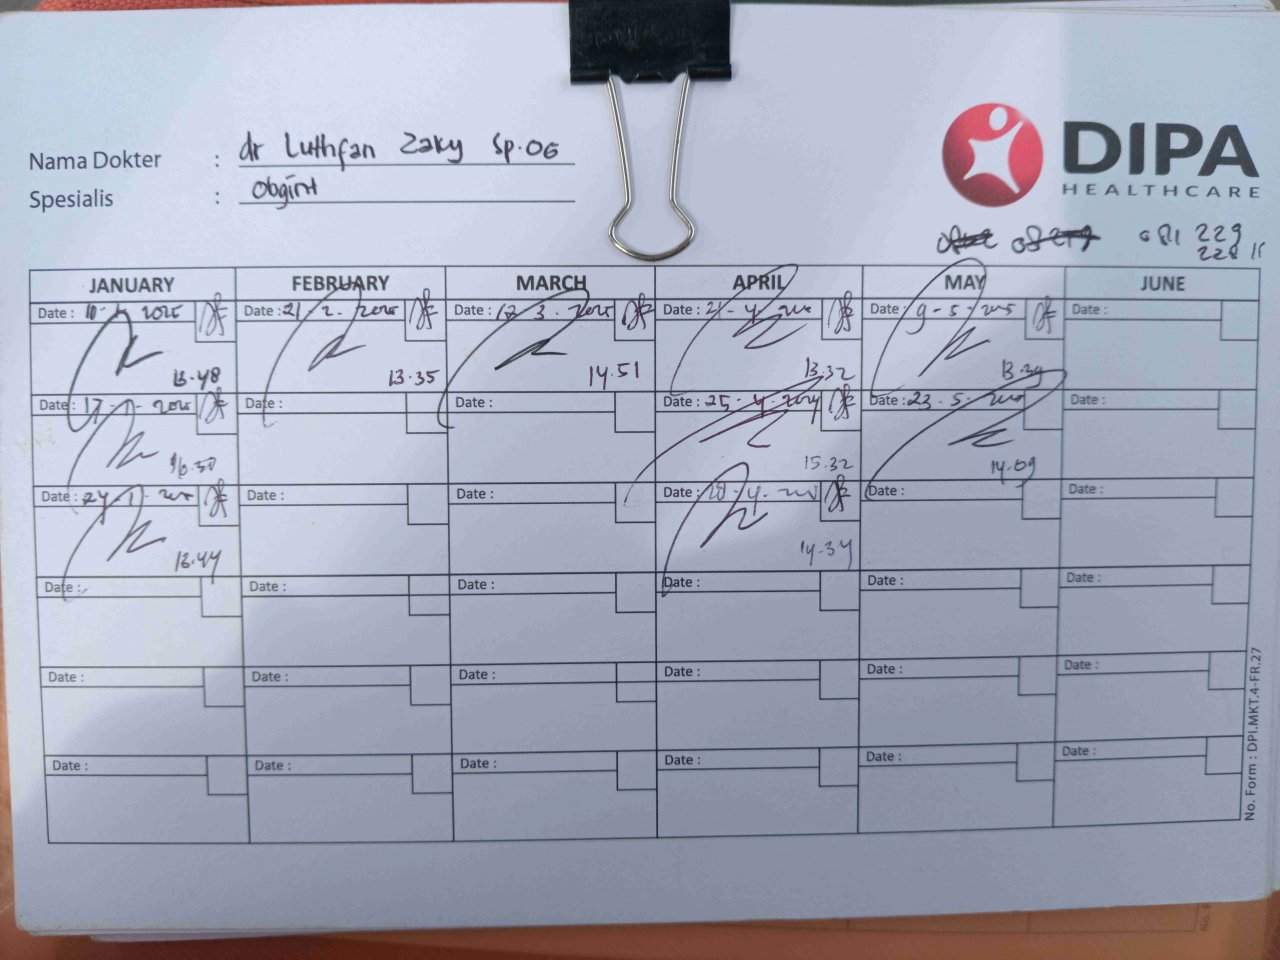 Nama Dokter : dr Luthfan Zaky Sp.OG
Spesialis : Obgin
DIPA
HEALTHCARE
081 229
228 11
JANUARY FEBRUARY MARCH APRIL MAY JUNE
Date : 10-1-2025 Date : 21-2-2025 Date : 3-2025 Date : 21-4- Date : 9-5-2025 Date :
13.48 13.35 14.51 13.32 13.39
Date : 17-1-2025 Date : Date : Date : 25-4-2024 Date : 23-5- Date :
16.30 15.32 14.09
Date : 24-1- Date : Date : Date : 28-4- Date : Date :
13.44 14.34
Date : Date : Date : Date : Date : Date :
Date : Date : Date : Date : Date : Date :
Date : Date : Date : Date : Date : Date :
No. Form : DPI.MKT.4-FR.27